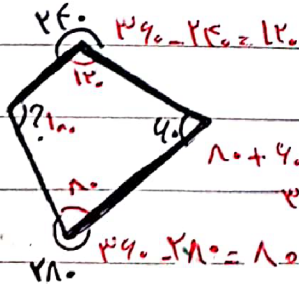 ۲۴۰ ۳۶۰ - ۲۴۰ = ۱۲۰
۱۲۰
? ۱۰۰ ۶۰
۸۰ + ۶۰
۸۰
۳۶۰ - ۲۸۰ = ۸۰
۲۸۰